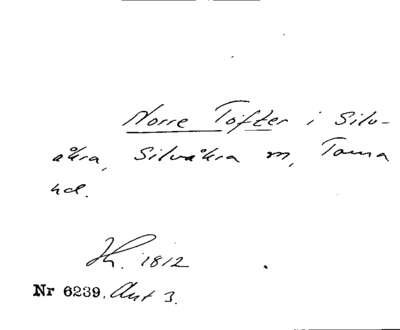 Norre Tofter i Silv-
åkra, Silvåkra sn, Torna
hd.
H. 1812
Nr 6239. Akt 3.